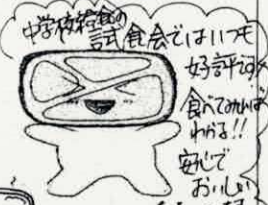 中学校給食の
試食会ではいつも
好評です
食べてみれば
わかる!!
安心で
おいしい